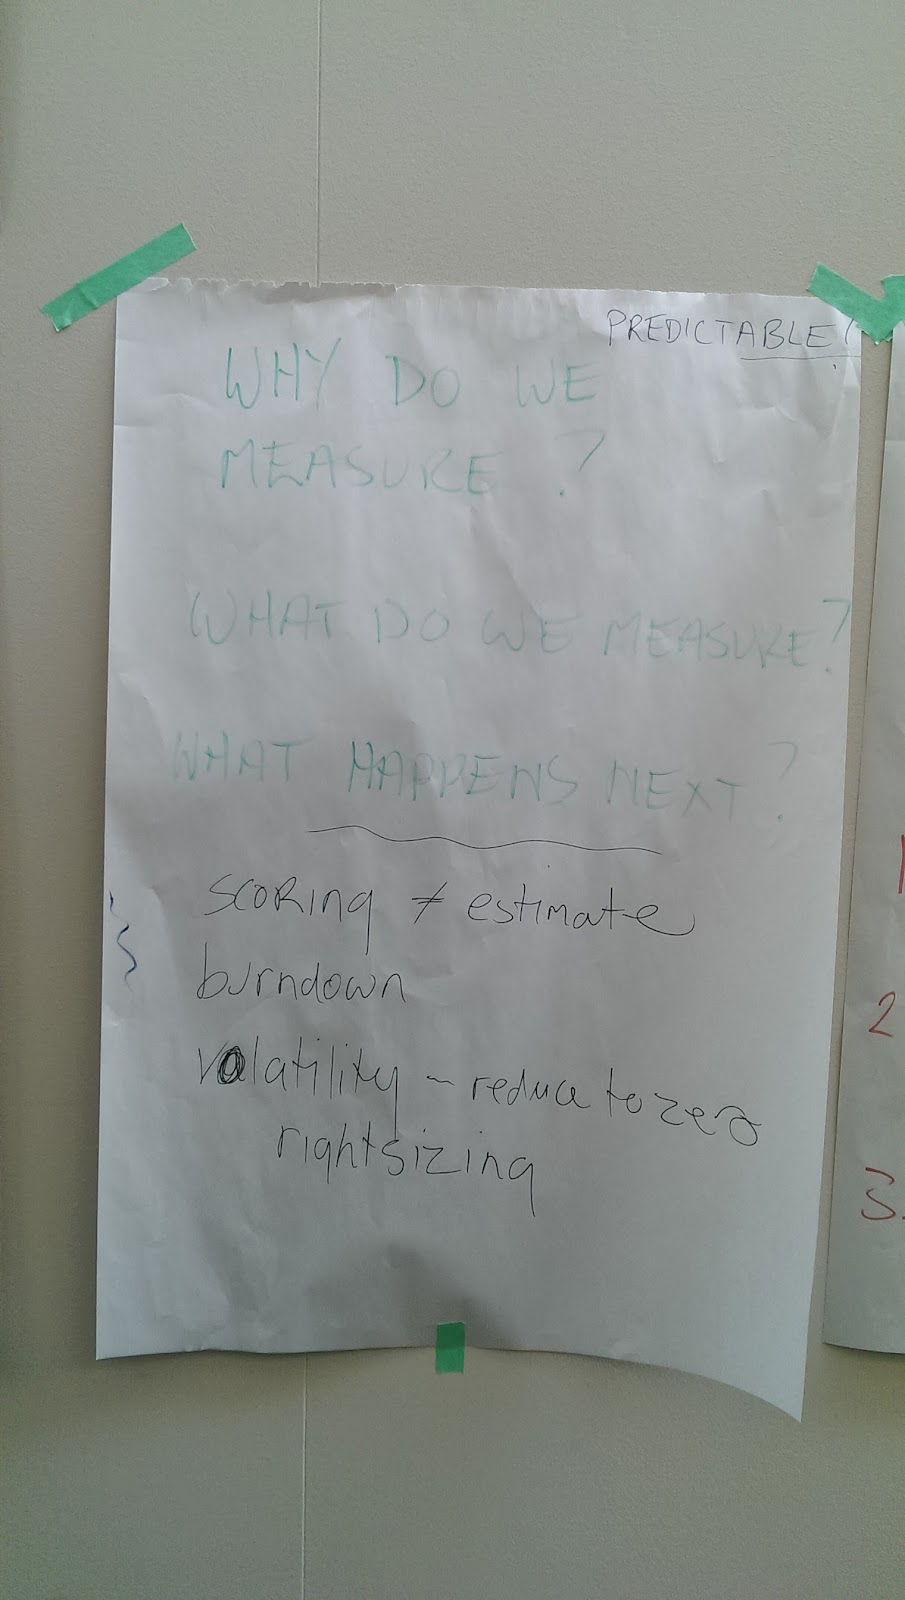 PREDICTABLE!
WHY DO WE
MEASURE ?
WHAT DO WE MEASURE?
WHAT HAPPENS NEXT?
scoring ≠ estimate
burndown
volatility - reduce to zero
rightsizing
2
3.